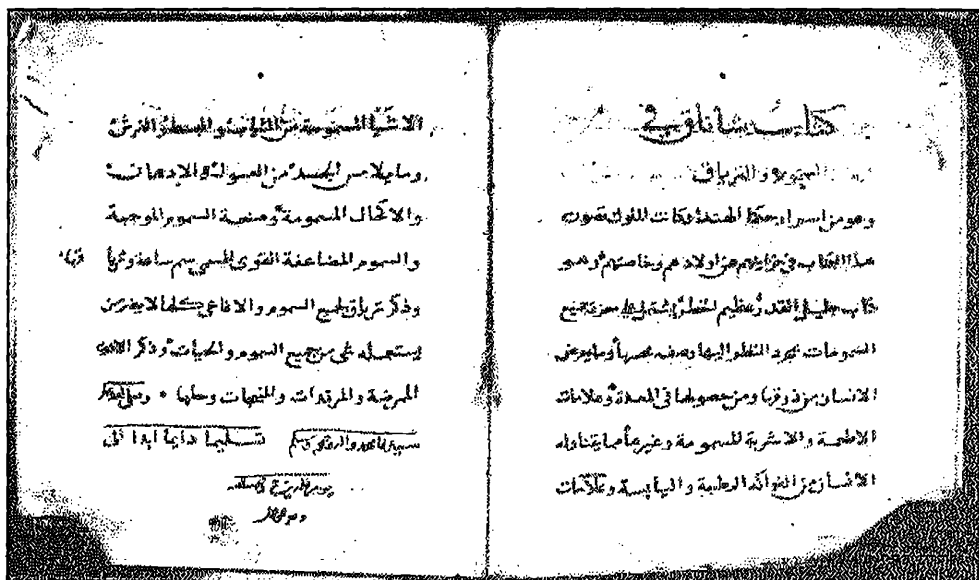 كتاب شاناق في
السموم والترياق
وهو من اسرار حكما الهند وكانت الملوك تصون
هذا الكتاب في خزاينهم عن اولادهم وخاصتهم وهو
كتاب جليل القدر عظيم الخطر يشتمل على معرفة جميع
السمومات بمجرد النظر اليها وصفه بحسها وما يعرض
الانسان من ذوقها ومن حصولها في المعدة وعلامات
الاطعمة والاشربة المسمومة وغيرها مما يتناوله
الانسان من الفواكه الرطبة واليابسة وعلامات
الاشيا المسمومة من الثياب والبسط والفرش
وما يلامس الجسد من الغسولات والادهان
والاكحال المسمومة وصنعة السموم الموجبة
والسموم المضاعفة القوى المسمى سم ساعة وقربها
وذكر ترياق لجميع السموم والافاعي كلها لا يضر من
يستعمله شي من جميع السموم والحيات وذكر الادوية
الممرضة والمرقدات والمنبهات وحلها وصلى الله على
سيدنا محمد واله وصحبه وسلم تسليما دايما ابدا الى
يوم الدين